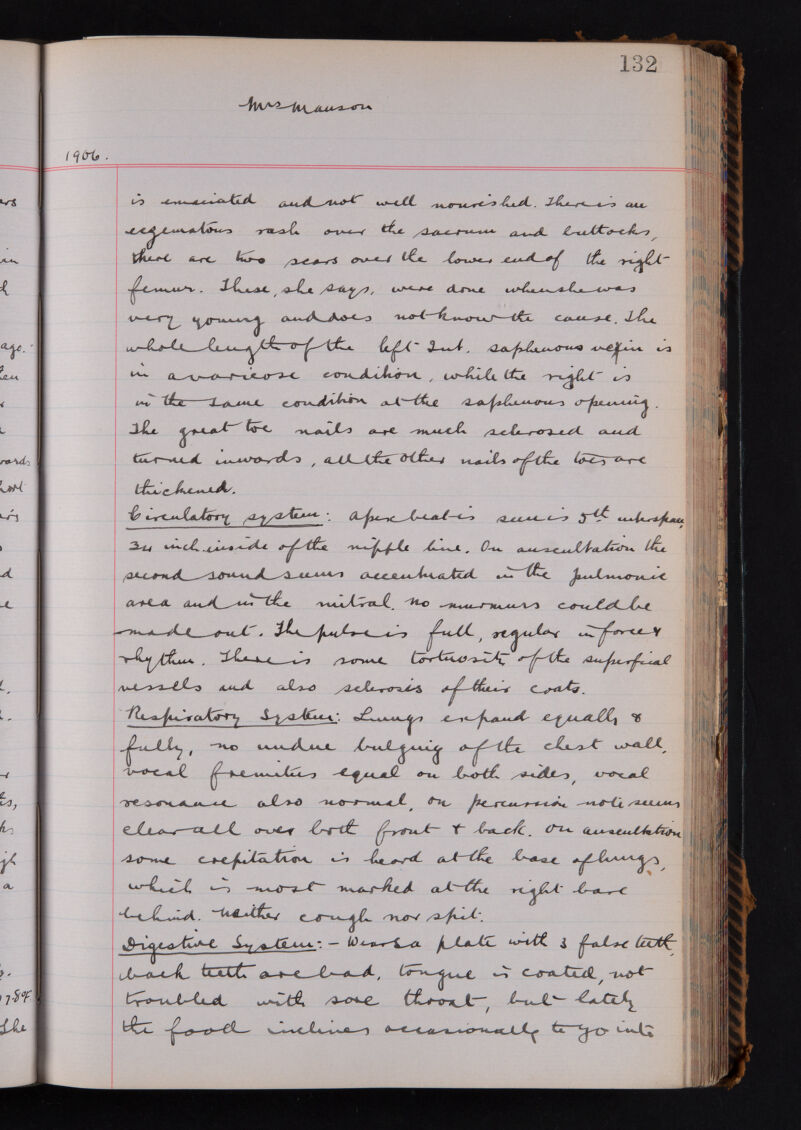 132
Mrs Manson
1906.
is emaciated and not well nourished. There is an
eczematous rash over the sacrum and buttocks,
there are two scars over the lower end of the right
femur. These, she says, were done when she was
very young and does not know the cause. The
whole length of the left Int. saphenous vein is
in a varicose condition, while the right is
in the same condition at the saphenous opening.
The great toe nails are much sclerosed and
turned inwards, all the other nails of the toes are
thickened.
Circulatory system: apex beat is seen is 5th interspace,
3/4 inch inside of the nipple line. On auscultation the
second sound seems accentuated in the pulmonic
area and in the mitral. no murmurs could be
made out. The pulse is full, regular in force &
rhythm. There is some tortuosity of the superficial
vessels and also sclerosis of their coats.
Respiratory System: Lungs expand equally &
fully, no undue bulging of the chest wall,
vocal fremitus equal on both sides, vocal
resonance also normal, on percussion note seems
clear all over both front & back. On auscultation
some crepitation is heard at the base of lungs,
which is most marked at the right base
behind. Neither cough nor spit.
Digestive System: - Wears a plate with 3 false teeth,
back teeth are bad, tongue is coated, not
troubled with sore throat, but lately
the food inclines occasionally to go into